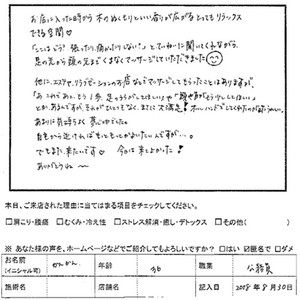 お店に入った時から木のぬくもりといい香りが広がるとってもリラックス
できる空間♡
「ここはどう？張ったり、痛かったりしない？」とていねいに聞いてくれながら、
足の先から頭の先まで くまなくマッサージしていただきました
他に、エステや、リラクゼーションのお店などでマッサージしてもらったことはありますが、
「あ これであと、もう1分、足のうらがしてほしい」や「腕やすがもう少ししてほしい」
とか、あるんですが、それがひとつもなく、まさに大満足！オールハンドでしてくれたのがまたうれしい。
あまりに気持ちよく夢心地でした。
自宅から近ければもっともっとかよいたい人ですが…。
でもまた、来たいです♡ 今日は来てよかった！
ありがとうね〜
本日、ご来店された理由に当てはまる項目をチェックしてください。
□肩こり・腰痛 □むくみ・冷え性 □ストレス解消・癒し・デトックス □その他( )
※ あなた様の声を、ホームページなどでご紹介してもよろしいですか？ □はい ☑匿名で □ダメ
お名前 (イニシャル可) かんかん 年齢 36 職業 公務員
施術名 店舗名 記入日 2018年8月30日